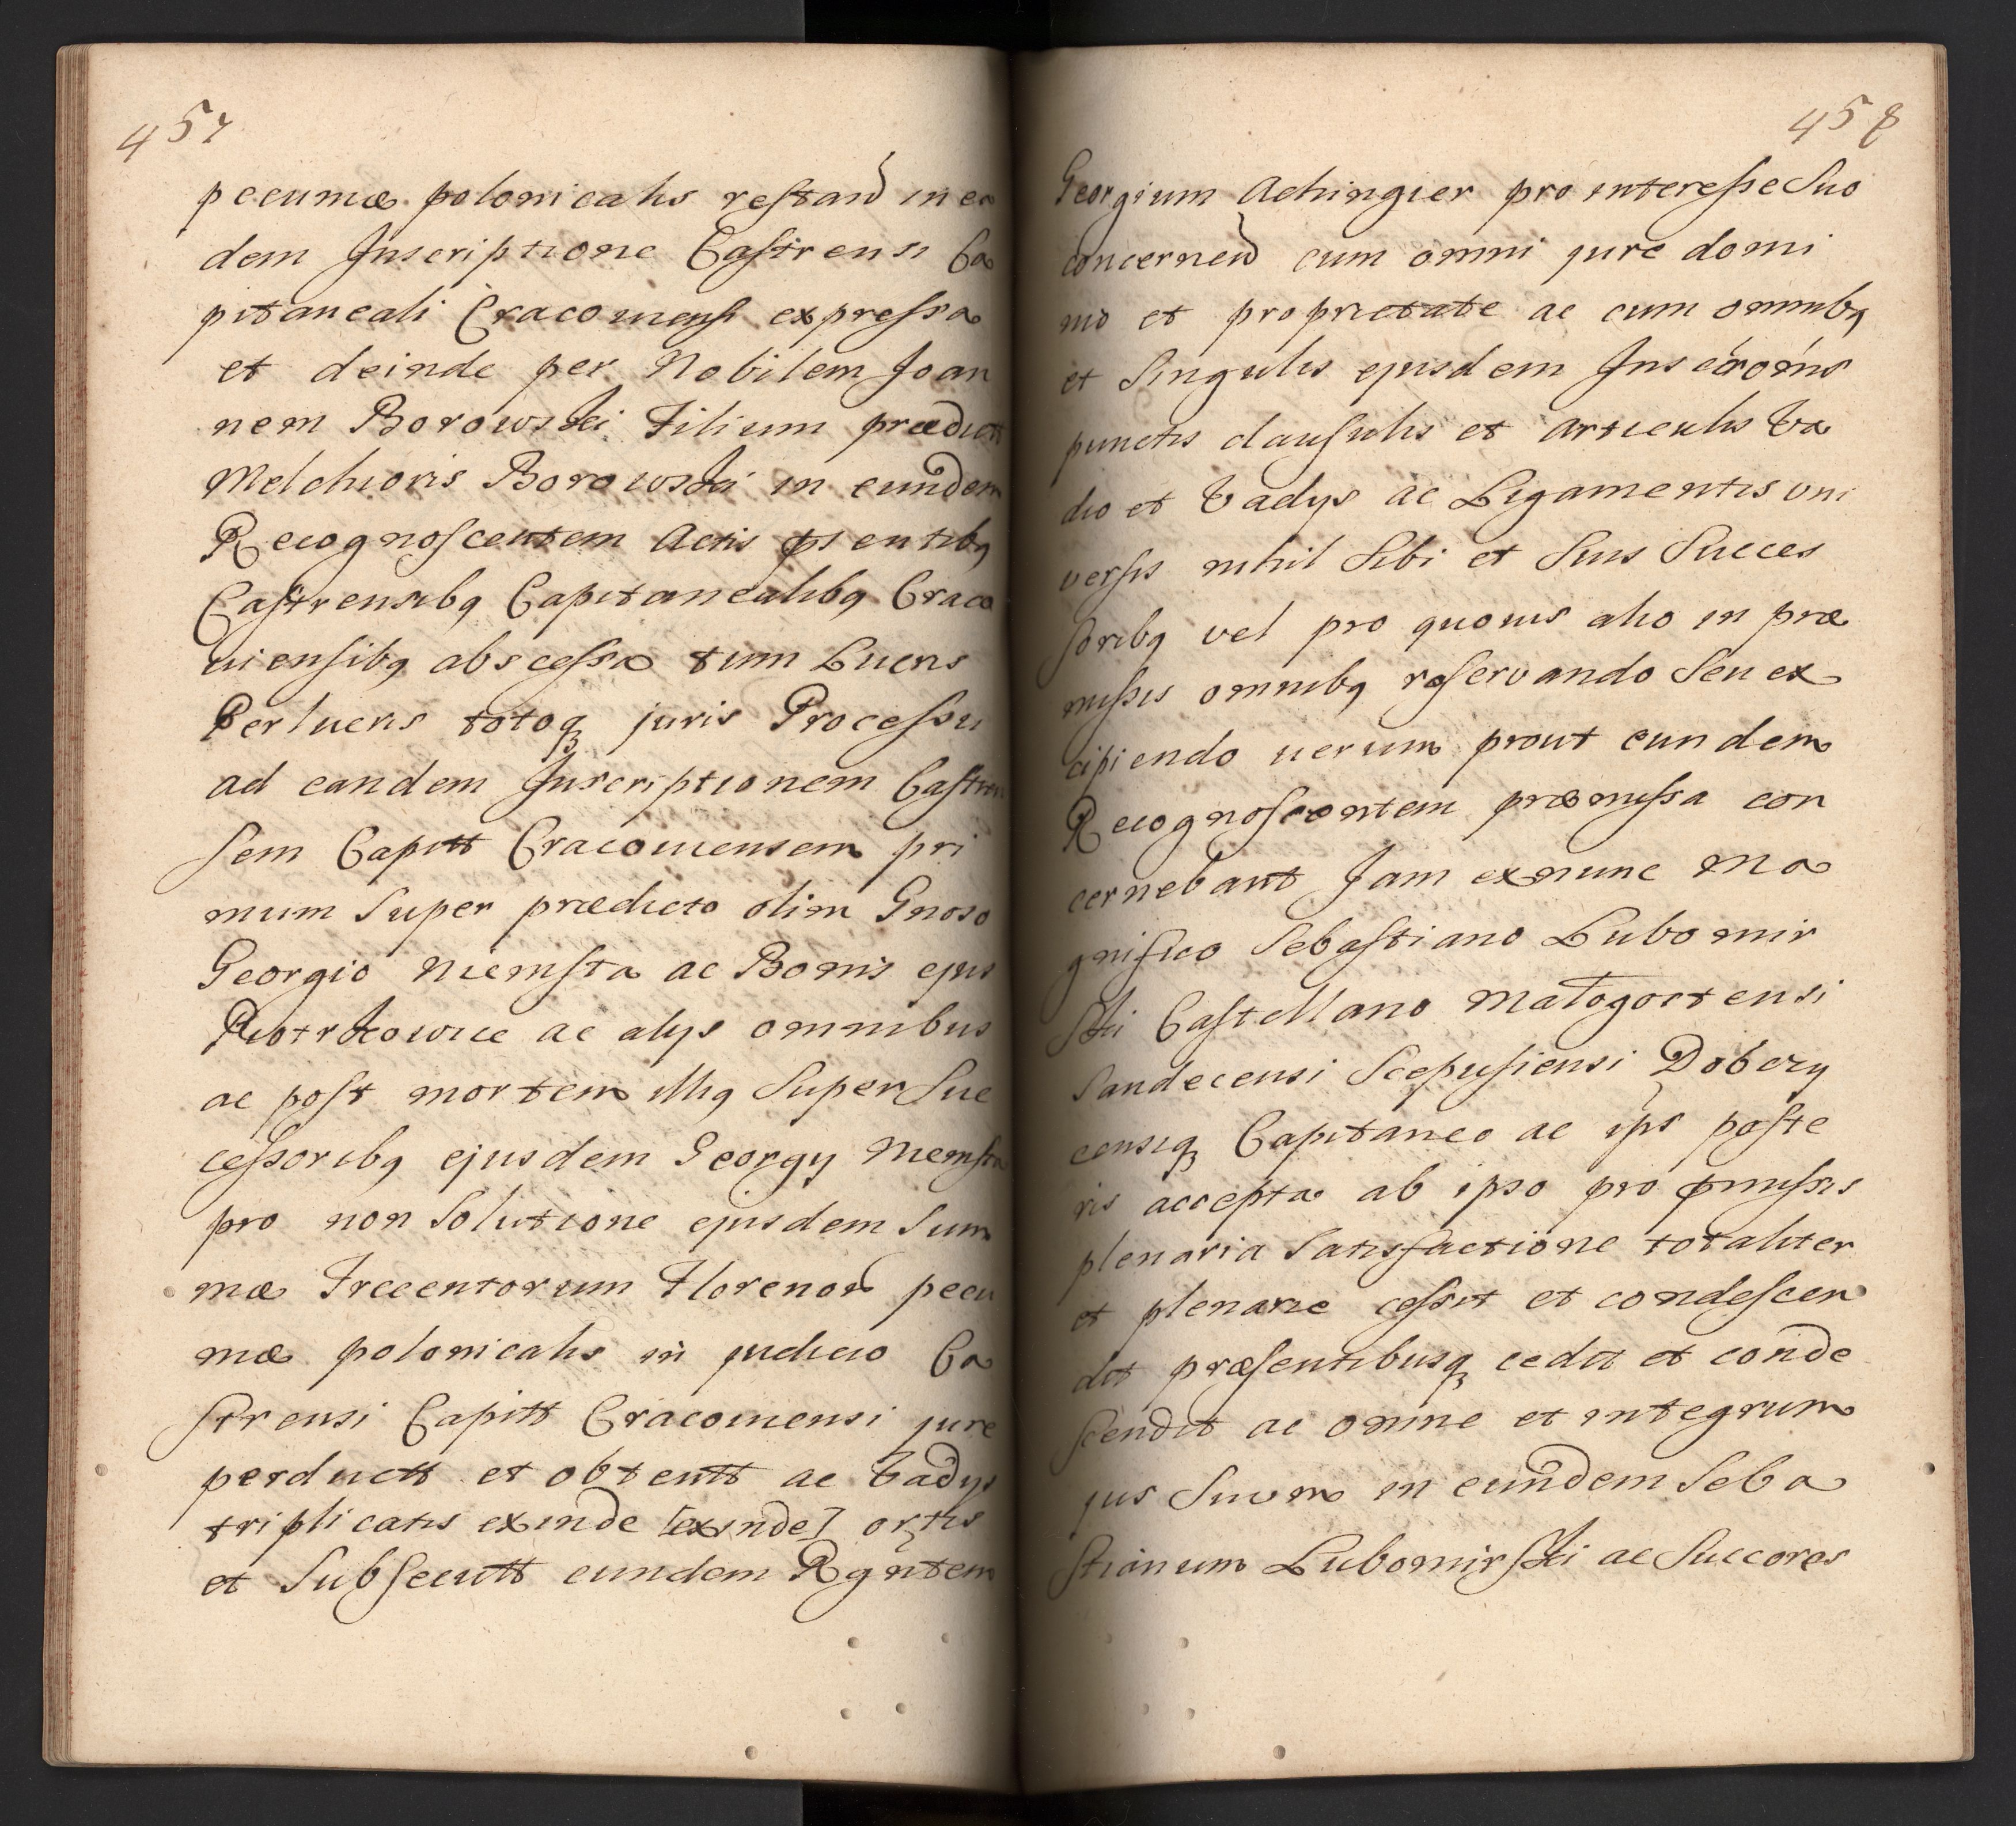 457
pecuniæ polonicalis restand in ea
dem Inscriptione Castrensi Ca
pitaneali Cracoviensi expressa
et deinde per Nobilem Joan
nem Borowski Filium prædict
Melchioris Borowski in eundem
Recognoscentem Actis pɴtibq
Castrensibq Capitanealibq Craco
viensibq abscessa tum Lucris
Perlucris totoq juris Processu
ad eandem Inscriptionem Castren
sem Capitt Cracoviensem pri
mum super prædicto olim Gnoso
Georgio Niemsta ac Bonis ejus
Piotrkowice ac alys omnibus
ac post mortem illiq super Suc
cessoribq ejusdem Georgy Niemsta
pro non Solutione ejusdem Sum
mæ Trecentorum Florenor pecu
niæ polonicalis in judicio Ca
strensi Capitt Cracoviensi jure
perductt et obtentt ac Vadys
triplicatis exinde [exinde] ortis
et Subsecutt eundem Rgntem
458
Georgium Achingier pro interesse Suo
concernend cum omni jure domi
nio et proprietate ac cum omnibq
et Singulis ejusdem Inscrōnis
punctis clausulis et articulis Va
dio et Vadys ac Ligamentis vni
versis nihil Sibi et Suis Succes
soribq vel pro quovis alio in præ
missis omnibq reservando Seu ex
cipiendo uerum prout eundem
Recognoscentem præmissa con
cernebant Jam exnunc Ma
gnifico Sebastiano Lubomir
ski Castellano Małogostensi
Sandecensi Scepusiensi Dobczy
censiq Capitaneo ac ips poste
ris accepta ab ipso pro pmissis
plenaria Satisfactione totaliter
et plenarie cessit et condescen
dit præsentibusq cedit et conde
scendit ac omne et integrum
jus Suum in eundem Seba
stianum Lubomirski ac Succores